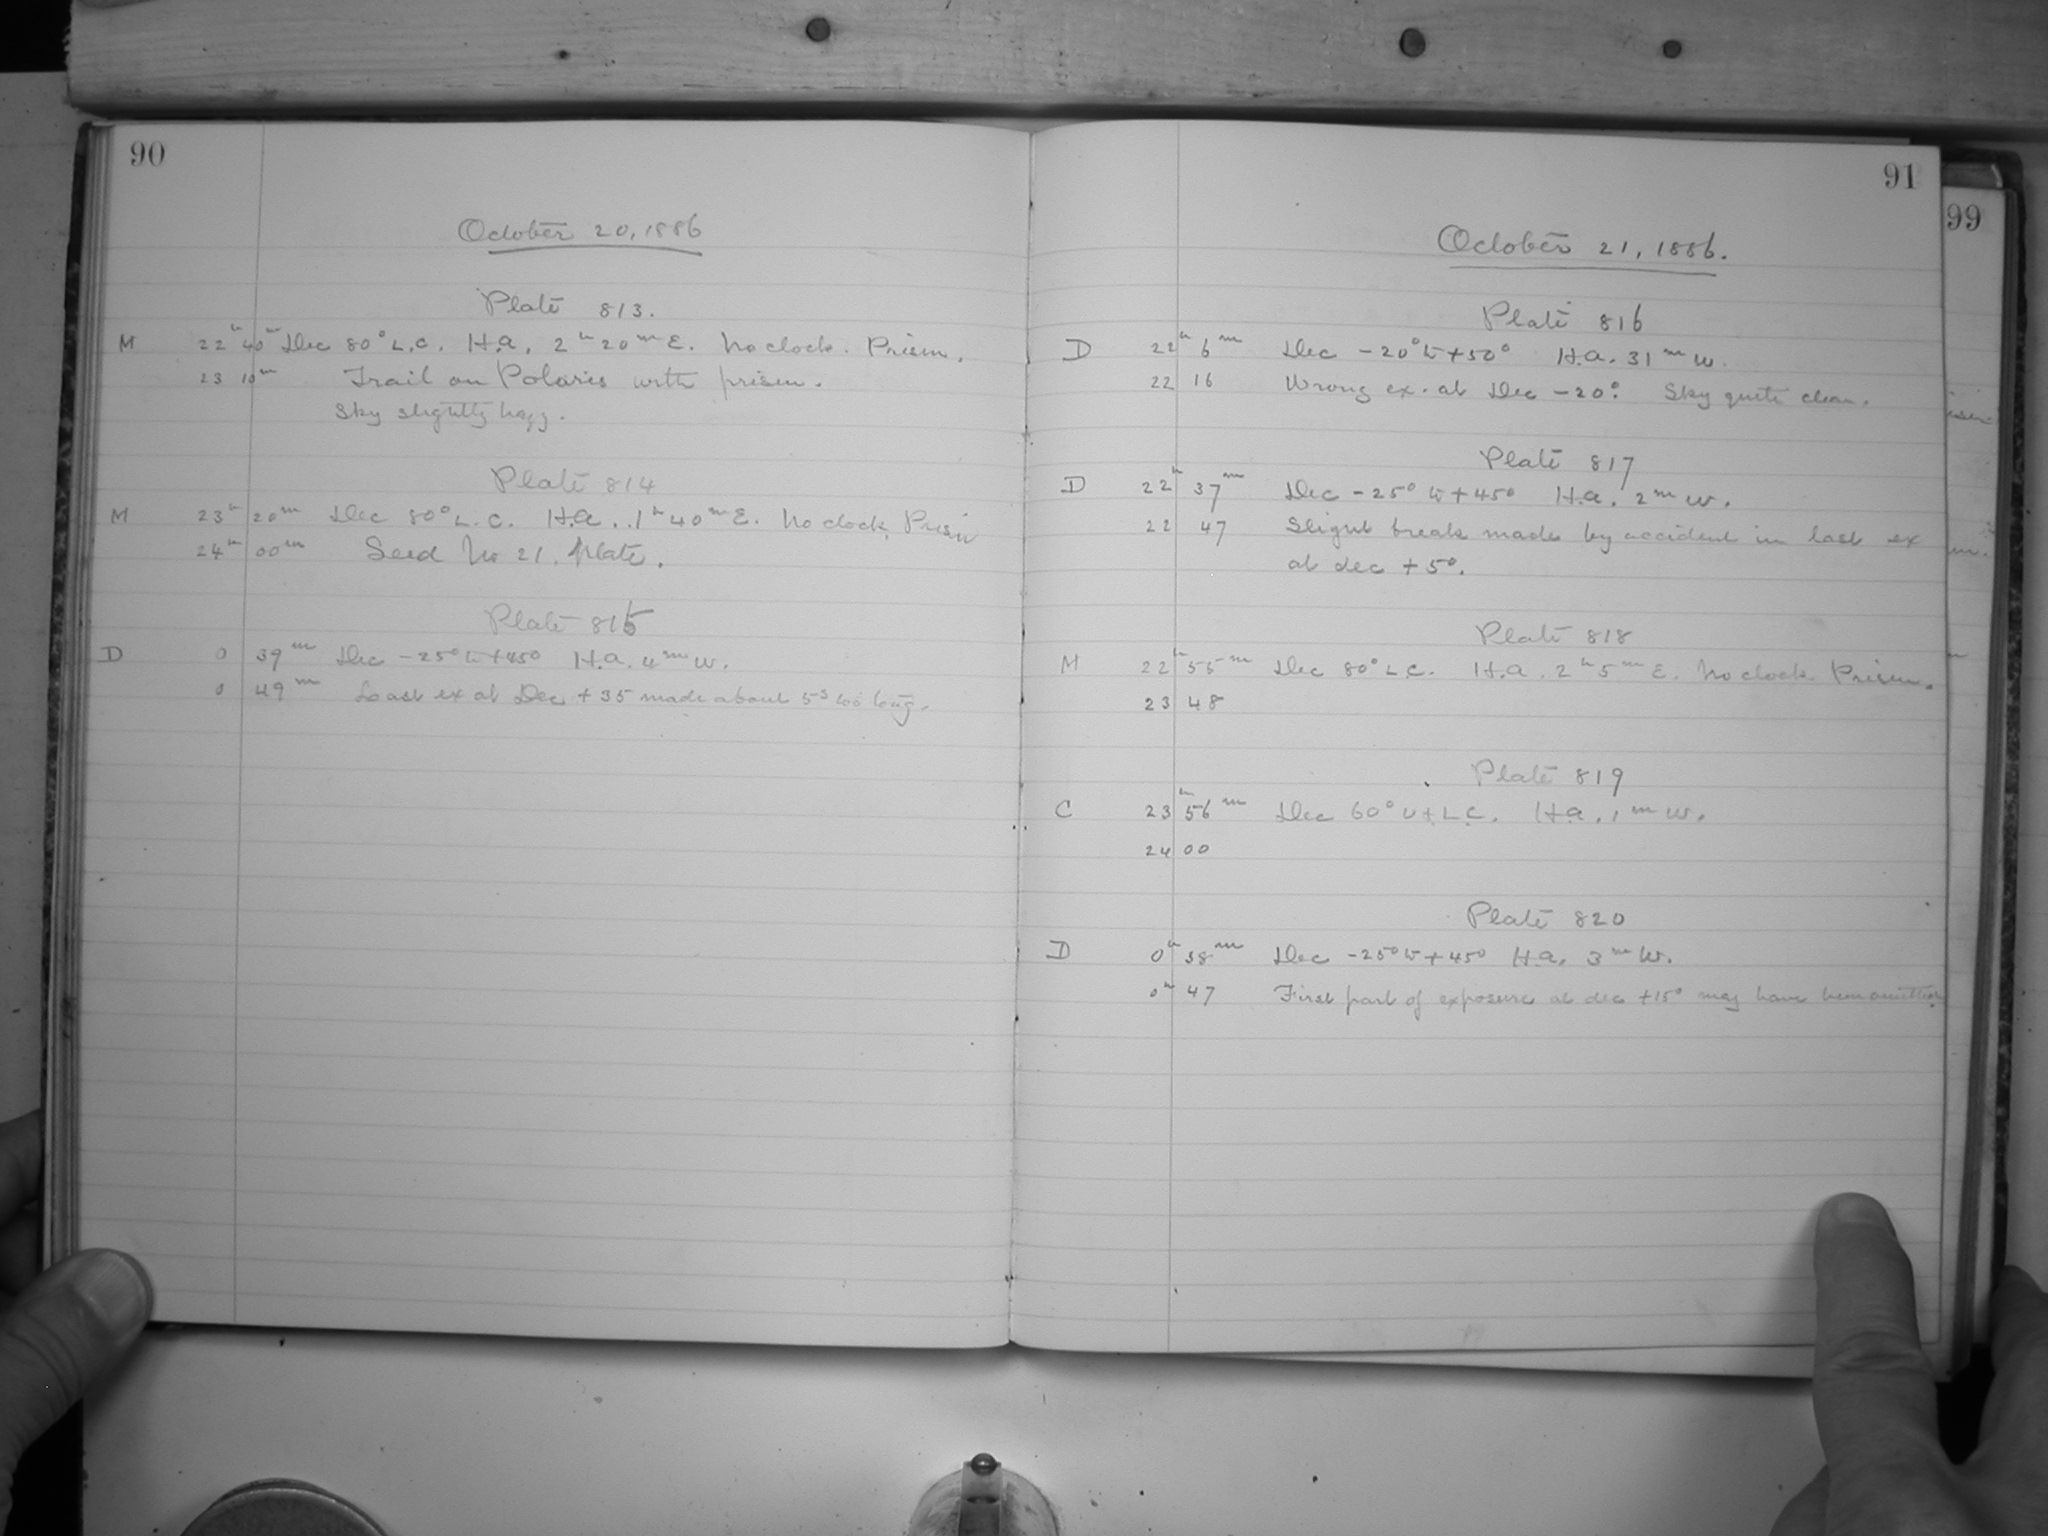 90
October 20, 1886
Plate 813.
M 22h 40m Dec 80° L.C. H.a. 2h 20m E. No clock. Prism.
23 10m Trail on Polaris with prism.
Sky slightly hazy.
Plate 814
M 23h 20m Dec 80° L.C. H.a. 1h 40m E. No clock, Prism
24h 00m Seed No 21. plate.
Plate 815
D 0 39m Dec -25° to +45° H.a. 4m W.
0 49m Last ex at Dec +35 made about 5s too long.
91
October 21, 1886.
Plate 816
D 22h 6m Dec -20° to +50° H.a. 31m W.
22 16 Wrong ex. at Dec -20°. Sky quite clear.
Plate 817
D 22h 37m Dec -25° to +45° H.a. 2m W.
22 47 Slight break made by accident in last ex
at dec +5°.
Plate 818
M 22h 55m Dec 80° L.C. H.a. 2h 5m E. No clock Prism.
23 48
Plate 819
C 23h 56m Dec 60° U+L.C. H.a. 1m W.
24 00
Plate 820
D 0h 38m Dec -25° to +45° H.a. 3m W.
0h 47 First part of exposure at dec +15° may have been omitted.
99